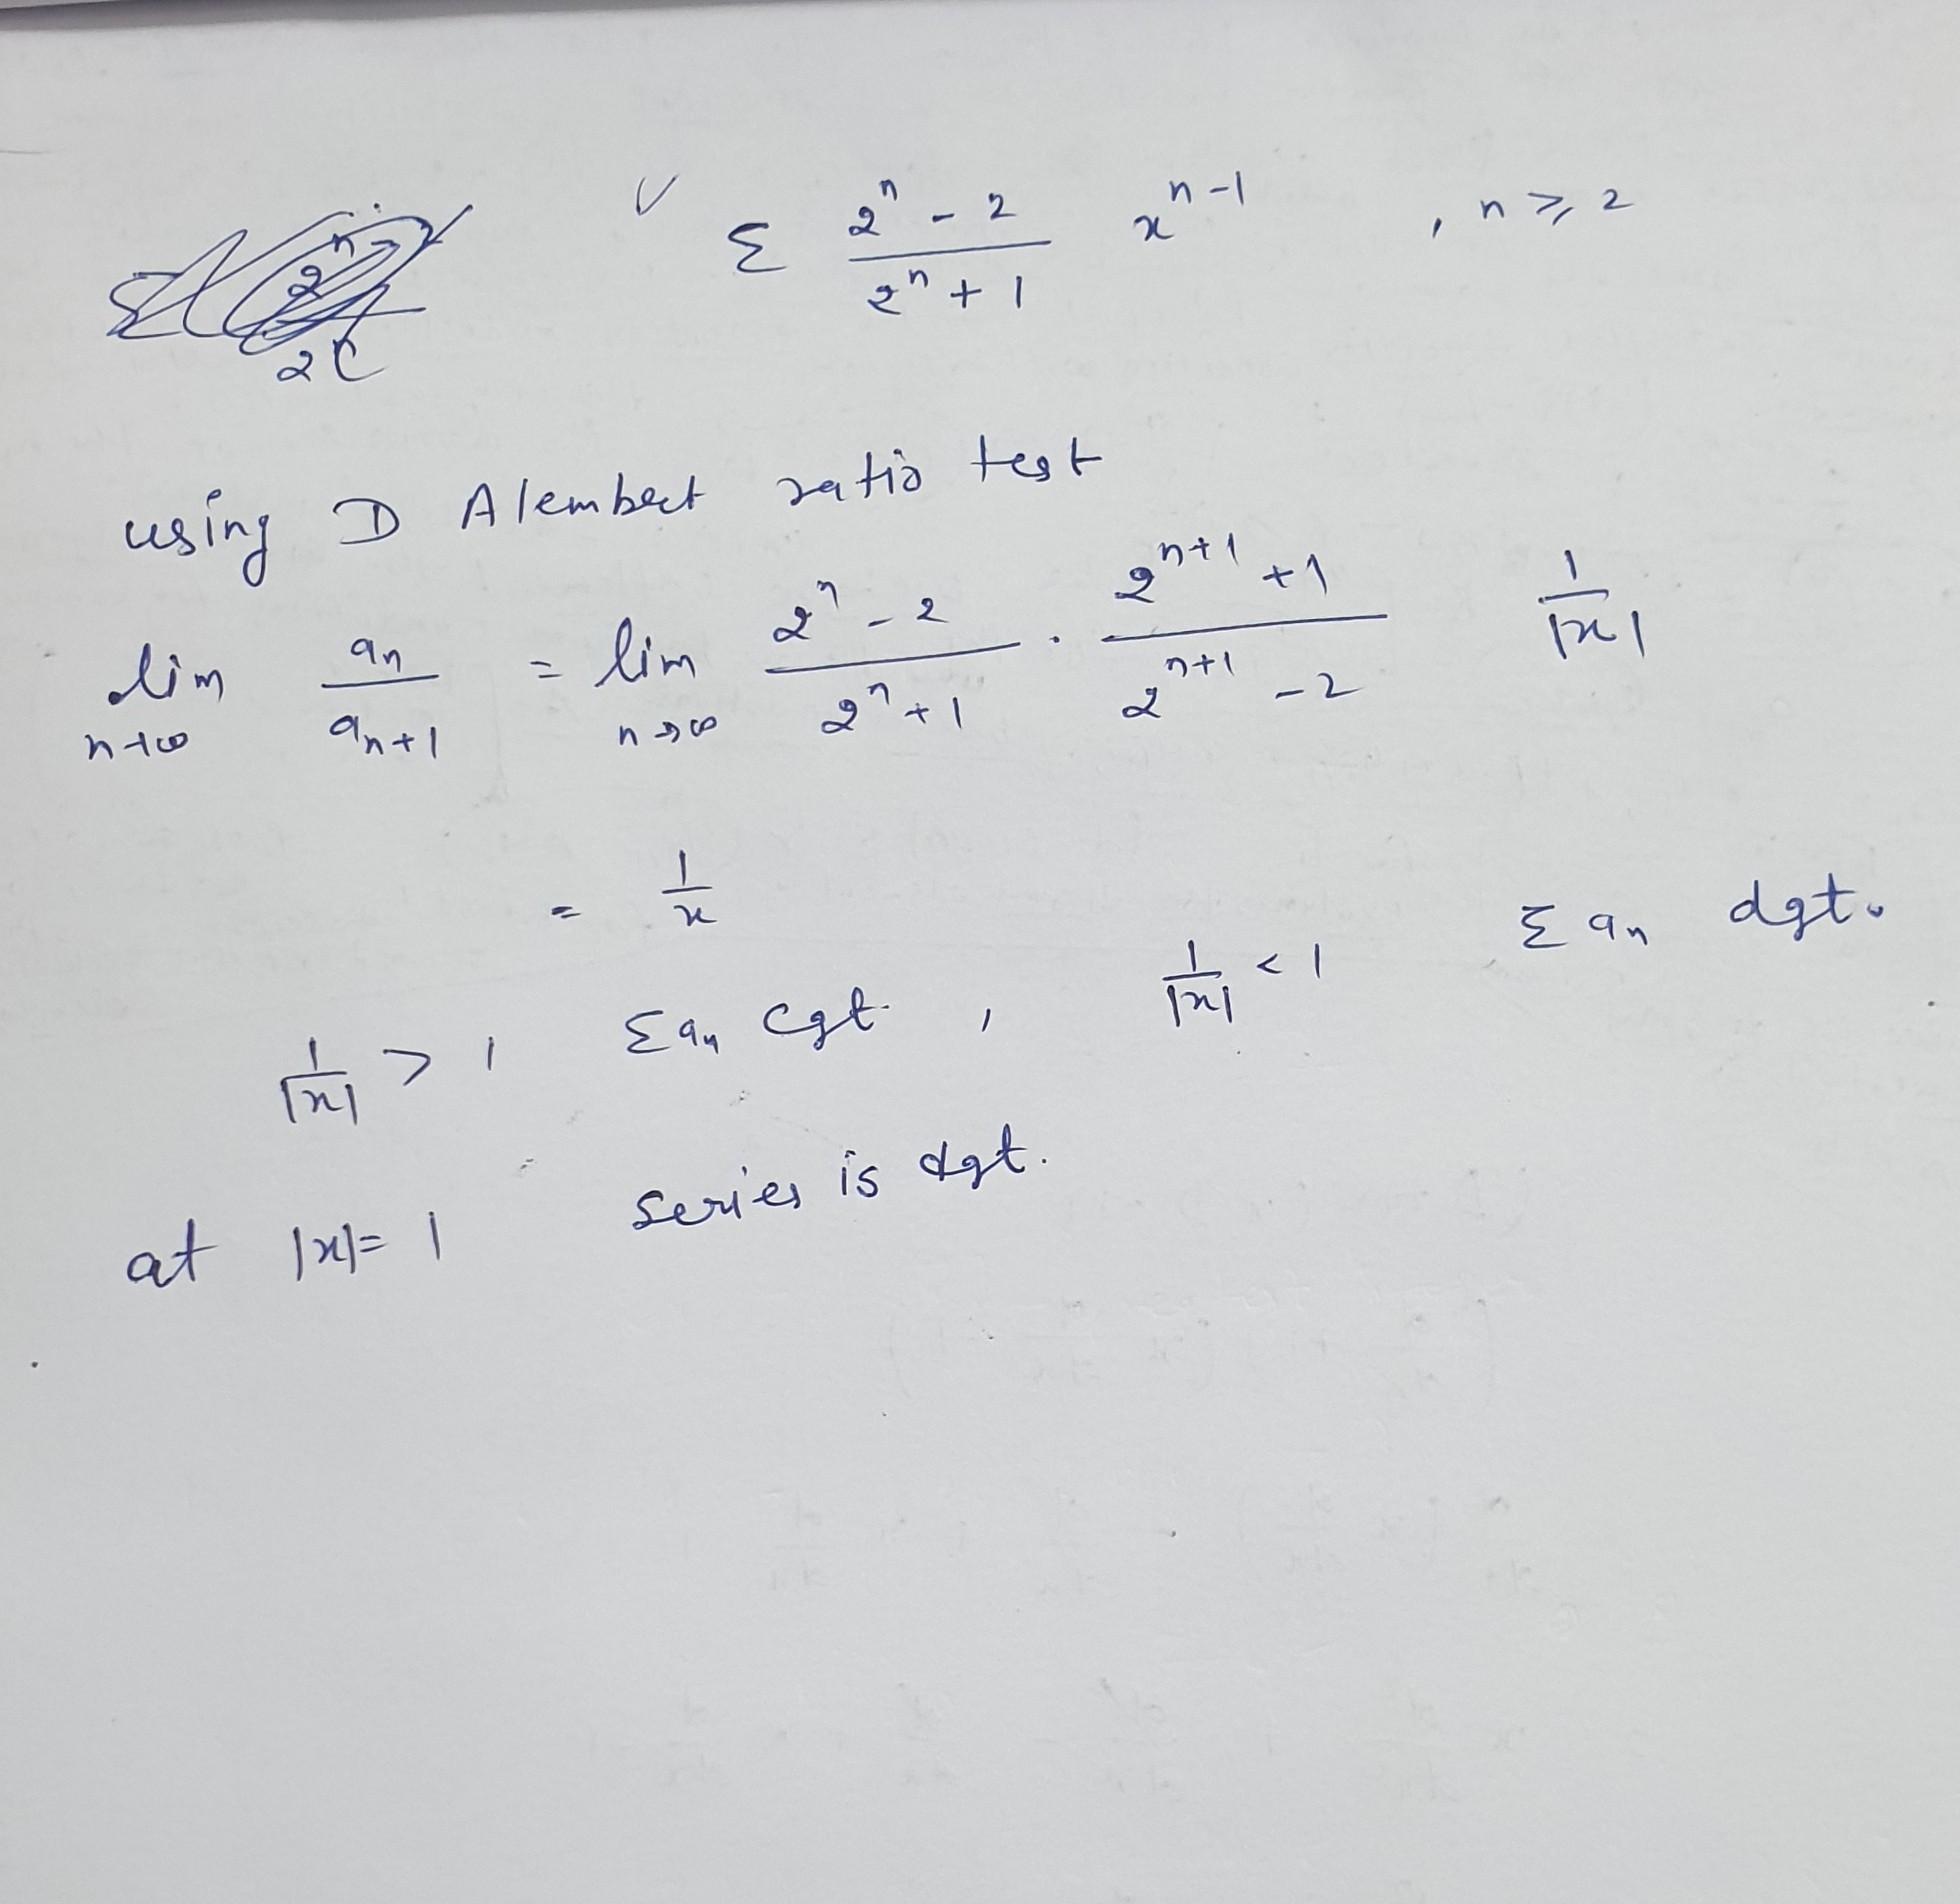 ✓ Σ (2^n - 2)/(2^n + 1) x^(n-1) , n ≥ 2
using D Alembert ratio test
lim n→∞ a_n/a_(n+1) = lim n→∞ (2^n - 2)/(2^n + 1) . (2^(n+1) + 1)/(2^(n+1) - 2) 1/|x|
= 1/x
1/|x| > 1 Σ a_n cgt. , 1/|x| < 1 Σ a_n dgt.
at |x| = 1 series is dgt.